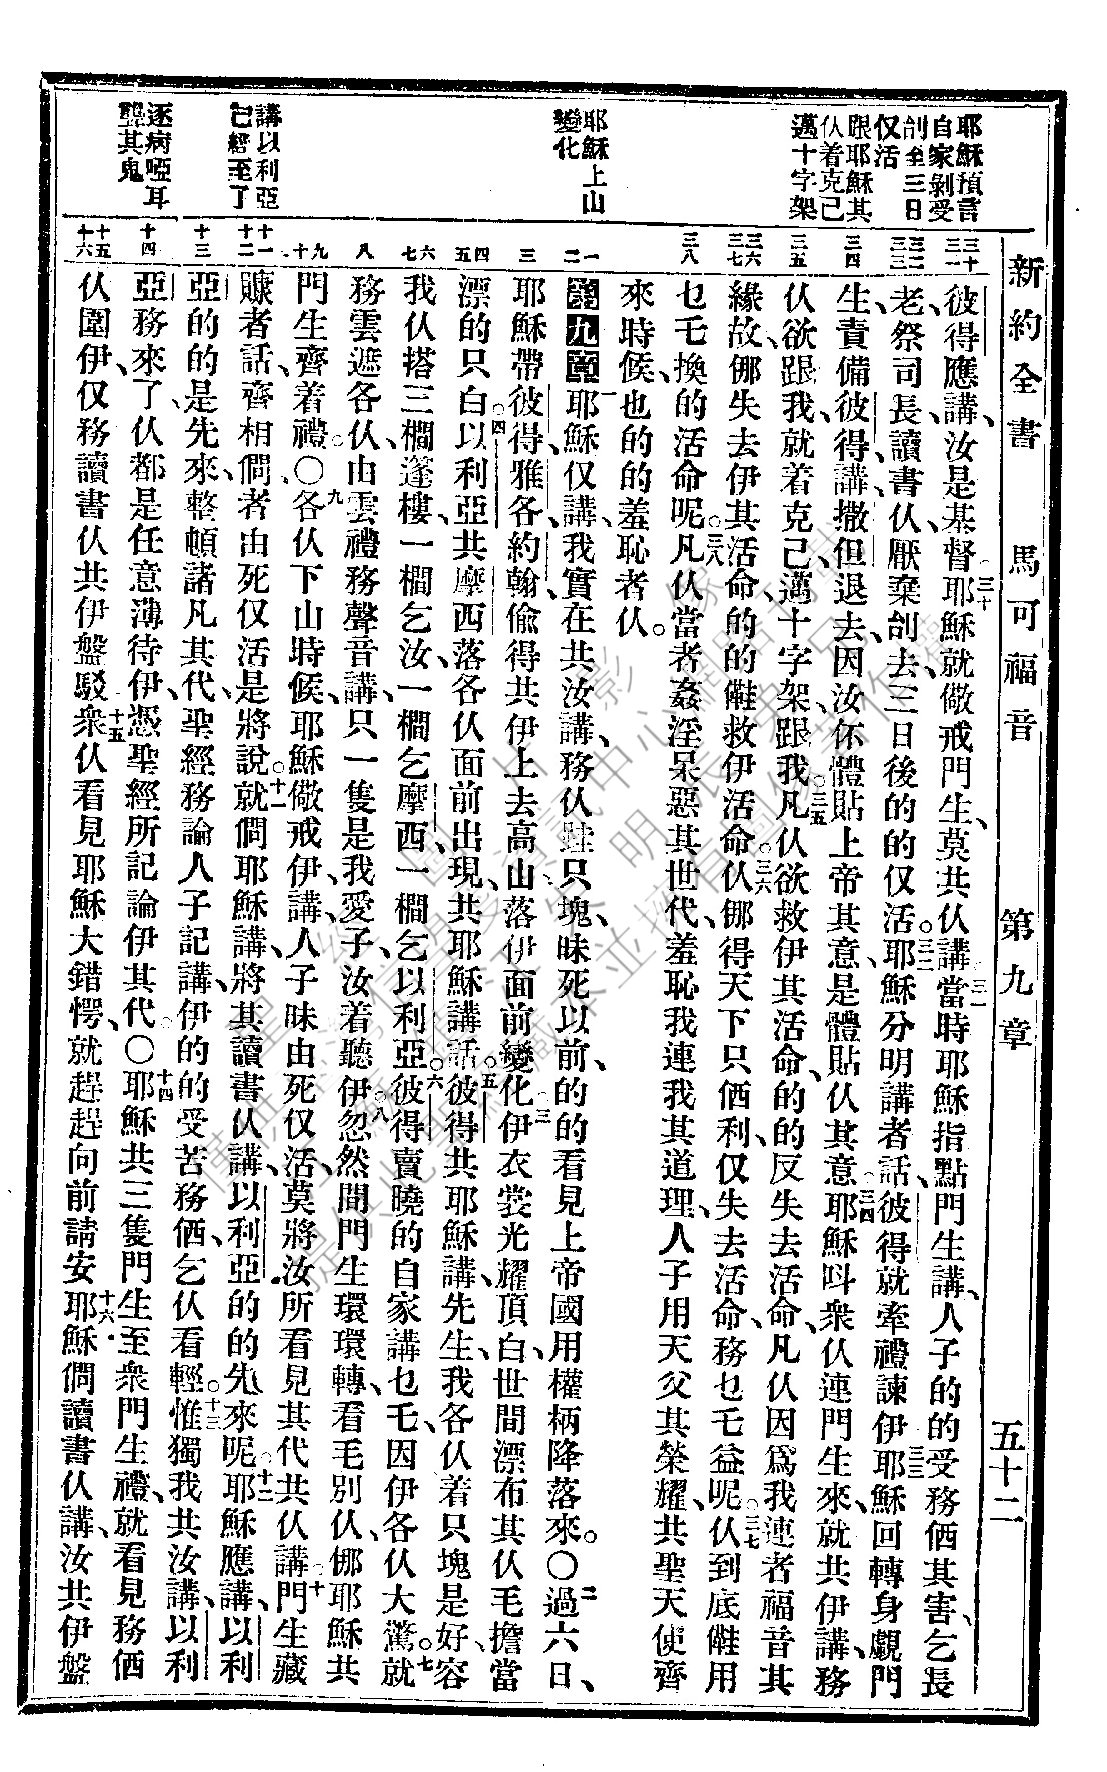 新約全書　馬可福音　第九章　五十二
耶穌預言
自家剝受
剖至三日
仅活
跟耶穌其
仈着克己
邁十字架
耶穌上山
變化
講以利亞
已經至了
逐病啞耳
聾其鬼
三十
三一
三二
三三
三四
三五
三六
三七
三八
一
二
三
四
五
六
七
八
九
十
十一
十二
十三
十四
十五
十六
彼得應講、汝是基督、耶穌就儆戒門生、莫共仈講、當時耶穌指點門生講、人子的的受務価其害、乞長
老祭司長讀書仈厭棄、剖去、三日後的的仅活。耶穌分明講者話、彼得就牽禮諫伊、耶穌回轉身覷門
生、責備彼得講、撒但退去、因汝伓體貼上帝其意、是體貼仈其意、耶穌呌衆仈連門生來、就共伊講、務
仈欲跟我、就着克己、邁十字架跟我。凡仈欲救伊其活命、的的反失去活命、凡仈因爲我連者福音其
緣故、㑚失去伊其活命、的的𠕇救伊活命、仈㑚得天下只価利、仅失去活命、務乜乇益呢。仈到底𠕇用
乜乇換的活命呢。凡仈當者姦淫呆惡其世代、羞恥我連我其道理、人子用天父其榮耀、共聖天使齊
來時候、也的的羞恥者仈。
第九章　耶穌仅講、我實在共汝講、務仈𨂿只塊、昧死以前、的的看見上帝國用權柄降落來。〇過六日、
耶穌帶彼得、雅各、約翰、偸得共伊上去高山、落伊面前變化、伊衣裳光耀頂白、世間漂布其仈毛擔當
漂的只白。以利亞共摩西落各仈面前出現、共耶穌講話。彼得共耶穌講、先生、我各仈着只塊是好、容
我仈搭三櫩篷樓、一櫩乞汝、一櫩乞摩西、一櫩乞以利亞。彼得賣曉的自家講乜乇、因伊各仈大驚。就
務雲遮各仈、由雲禮務聲音講、只一隻是我愛子、汝着聽伊。忽然間門生環環轉看、毛別仈、㑚耶穌共
門生齊着禮。〇各仈下山時候、耶穌儆戒伊講、人子昧由死仅活、莫將汝所看見其代共仈講、門生藏
賺者話、齊相僩者由死仅活是將說。就僩耶穌講、將其讀書仈講、以利亞的的先來呢。耶穌應講、以利
亞的的是先來、整頓諸凡其代、聖經務論人子記講、伊的的受苦、務価乞仈看輕。惟獨我共汝講、以利
亞務來了、仈都是任意薄待伊、憑聖經所記論伊其代。〇耶穌共三隻門生至衆門生禮、就看見務価
仈圍伊、仅務讀書仈共伊盤駁、衆仈看見耶穌、大錯愕、就趕趕向前請安、耶穌僩讀書仈講、汝共伊盤